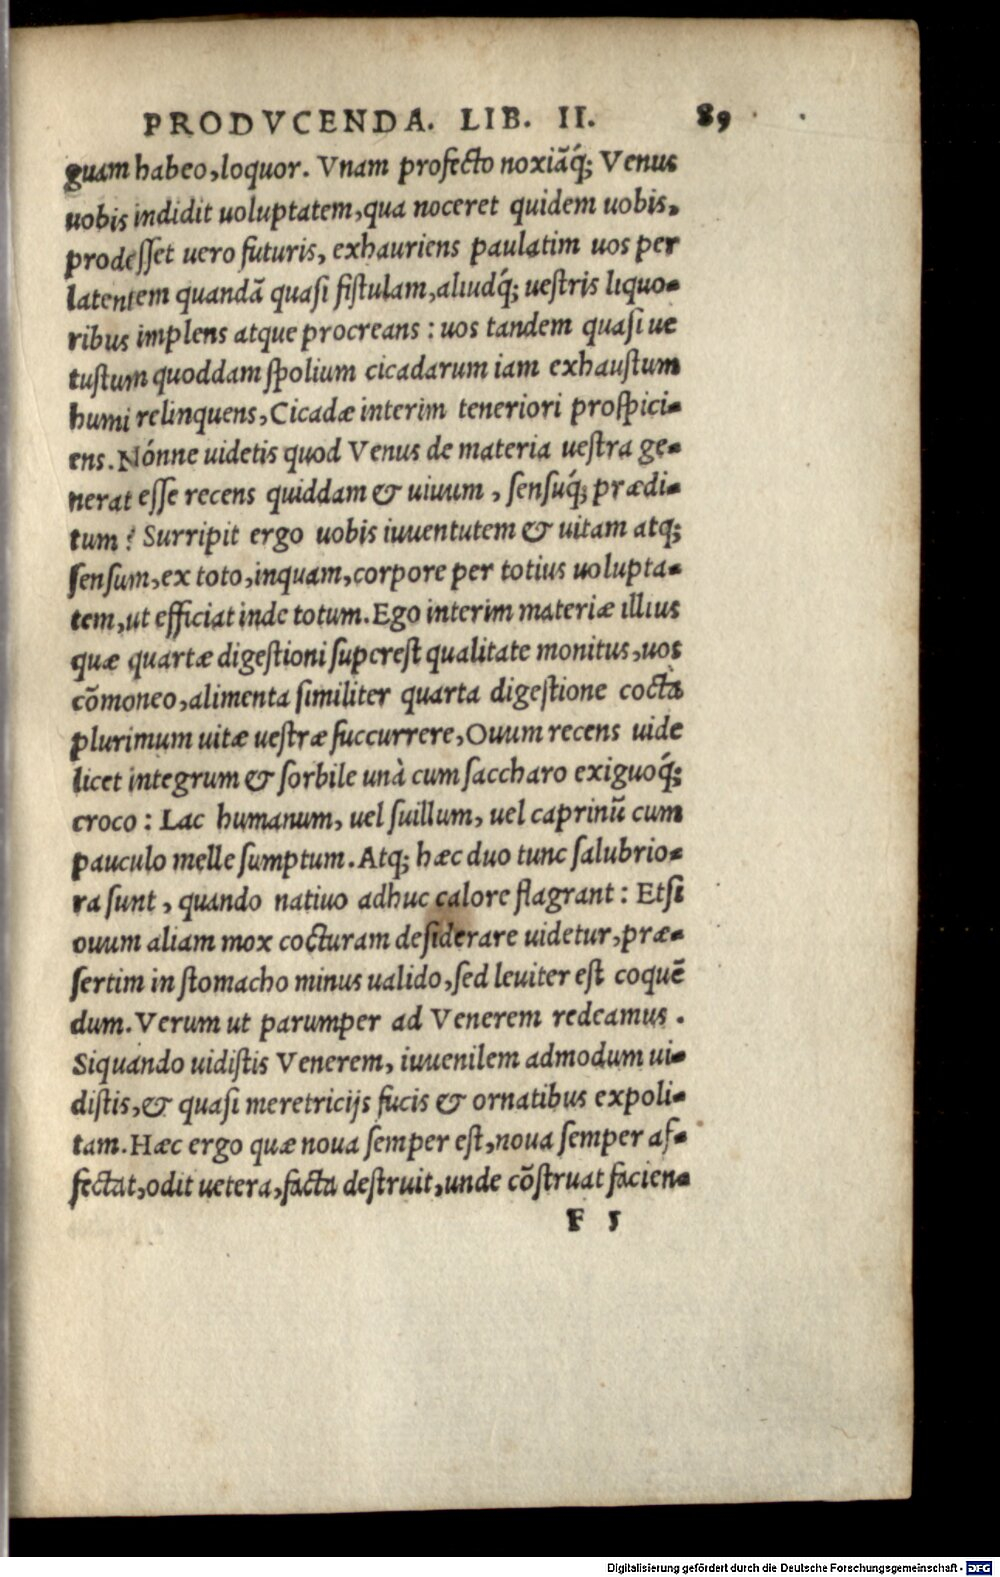 PRODVCENDA. LIB. II. 89
guam habeo, loquor. Vnam profecto noxiãq́; Venus
uobis indidit uoluptatem, qua noceret quidem uobis,
prodesset uero futuris, exhauriens paulatim uos per
latentem quandã quasi fistulam, aliudq́; uestris liquo-
ribus implens atque procreans: uos tandem quasi ue
tustum quoddam spolium cicadarum iam exhaustum
humi relinquens, Cicadæ interim teneriori prospici-
ens. Nónne uidetis quod Venus de materia uestra ge-
nerat esse recens quiddam & uiuum, sensuq́; prædi-
tum? Surripit ergo uobis iuuentutem & uitam atq;
sensum, ex toto, inquam, corpore per totius uolupta-
tem, ut efficiat inde totum. Ego interim materiæ illius
quæ quartæ digestioni superest qualitate monitus, uos
cõmoneo, alimenta similiter quarta digestione cocta
plurimum uitæ uestræ succurrere, Ouum recens uide
licet integrum & sorbile unà cum saccharo exiguoq́;
croco: Lac humanum, uel suillum, uel caprinũ cum
pauculo melle sumptum. Atq; hæc duo tunc salubrio-
ra sunt, quando natiuo adhuc calore flagrant: Etsi
ouum aliam mox cocturam desiderare uidetur, præ-
sertim in stomacho minus ualido, sed leuiter est coquẽ
dum. Verum ut parumper ad Venerem redeamus.
Siquando uidistis Venerem, iuuenilem admodum ui-
distis, & quasi meretricijs fucis & ornatibus expoli-
tam. Hæc ergo quæ noua semper est, noua semper af-
fectat, odit uetera, facta destruit, unde cõstruat facien-
F 5
Digitalisierung gefördert durch die Deutsche Forschungsgemeinschaft - DFG